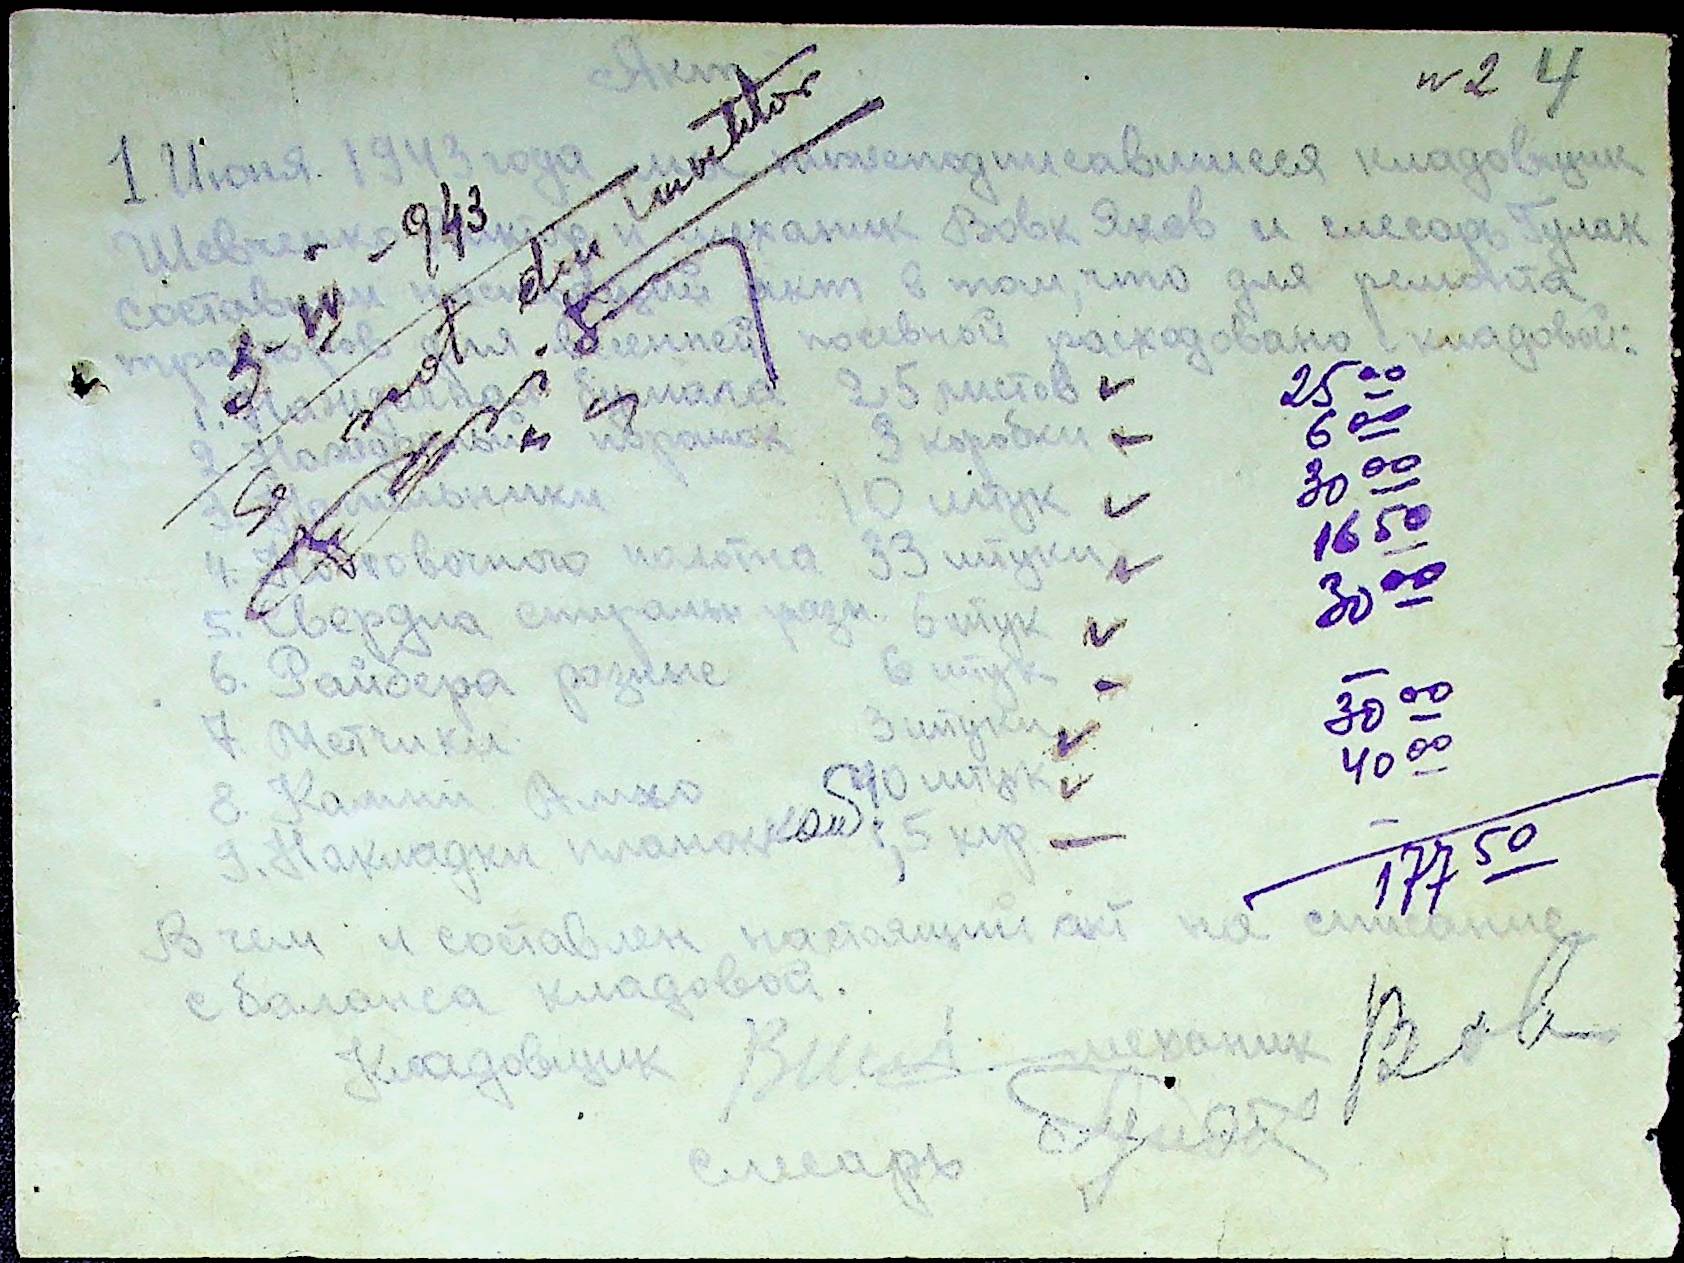 Акт
№ 2 4
1. Июня 1943 года мы нижеподписавшиеся кладовщик
Шевченко и механик Вовк Яков и слесарь Гулак
составили настоящий акт в том, что для ремонта
тракторов для весенней посевной расходовано с кладовой:
1. Наждачная бумага 25 листов 25 00
2. Наждачный порошок 3 коробки 6 00
3. Напильники 10 штук 30 00
4. Ножовочного полотна 33 штуки 16 50
5. Свердла спиральн разн. 6 штук 30 00
6. Райбера розные 6 штук –
7. Метчики 3 штуки 30 00
8. Камни 40 штук 40 00
9. Накладки 1,5 кгр –
177 50
В чем и составлен настоящий акт на списание
с баланса кладовой.
Кладовщик механик Вовк
слесарь
943
scot din inventar